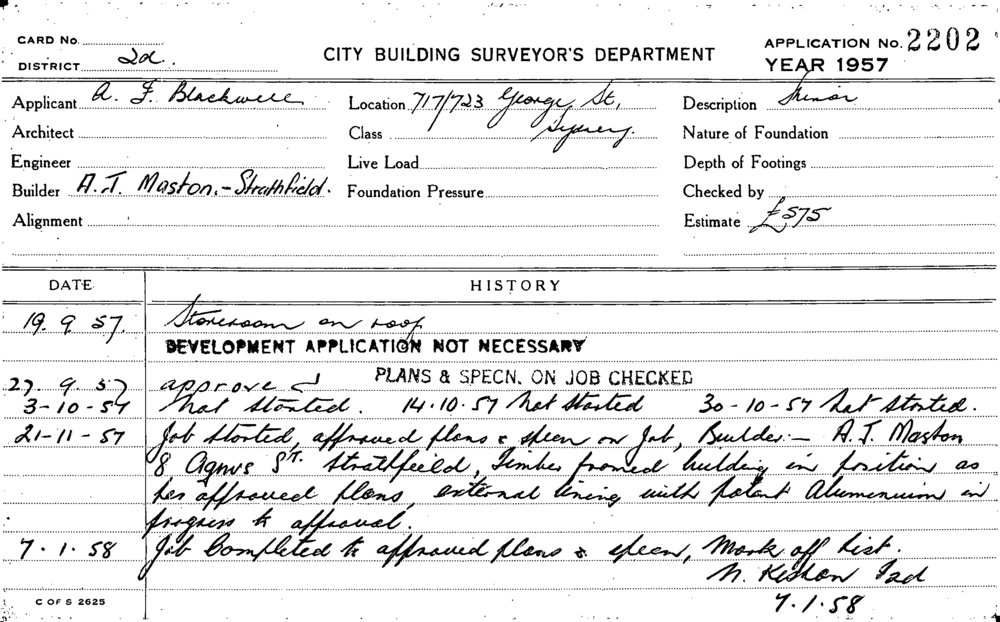 CARD No.
DISTRICT 2d.
CITY BUILDING SURVEYOR'S DEPARTMENT
APPLICATION No. 2202
YEAR 1957
Applicant A. F. Blackwell
Location 717/723 George St,
Sydney.
Description Minor
Architect
Class
Nature of Foundation
Engineer
Live Load
Depth of Footings
Builder A.J. Maston.-Strathfield.
Foundation Pressure
Checked by
Alignment
Estimate £575
DATE
HISTORY
19. 9 57. Storeroom on roof
DEVELOPMENT APPLICATION NOT NECESSARY
27. 9. 57 approved PLANS & SPECN. ON JOB CHECKED
3-10-57 Not started. 14.10.57 Not started 30-10-57 Not started.
21-11-57 Job started, approved plans & specn on Job, Builder:- A.J. Maston
8 Agnes ST. Strathfeild, Timber framed building in position as
per approved plans, external lining with patent Aluminium in
progress to approval.
7.1.58 Job Completed to approved plans & specn, Mark off list.
7.1.58
C OF S 2625